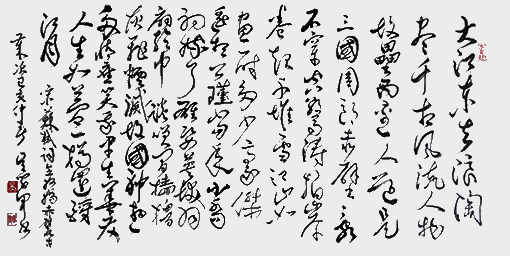 大江东去浪淘
尽千古风流人物
故垒西边人道是
三国周郎赤壁乱
石穿空惊涛拍岸
卷起千堆雪江山如
画一时多少豪杰
遥想公瑾当年小乔
初嫁了雄姿英发羽
扇纶巾谈笑间樯橹
灰飞烟灭故国神游
多情应笑我早生华发
人生如梦一樽还酹
江月
宋苏轼词念奴娇赤壁怀古